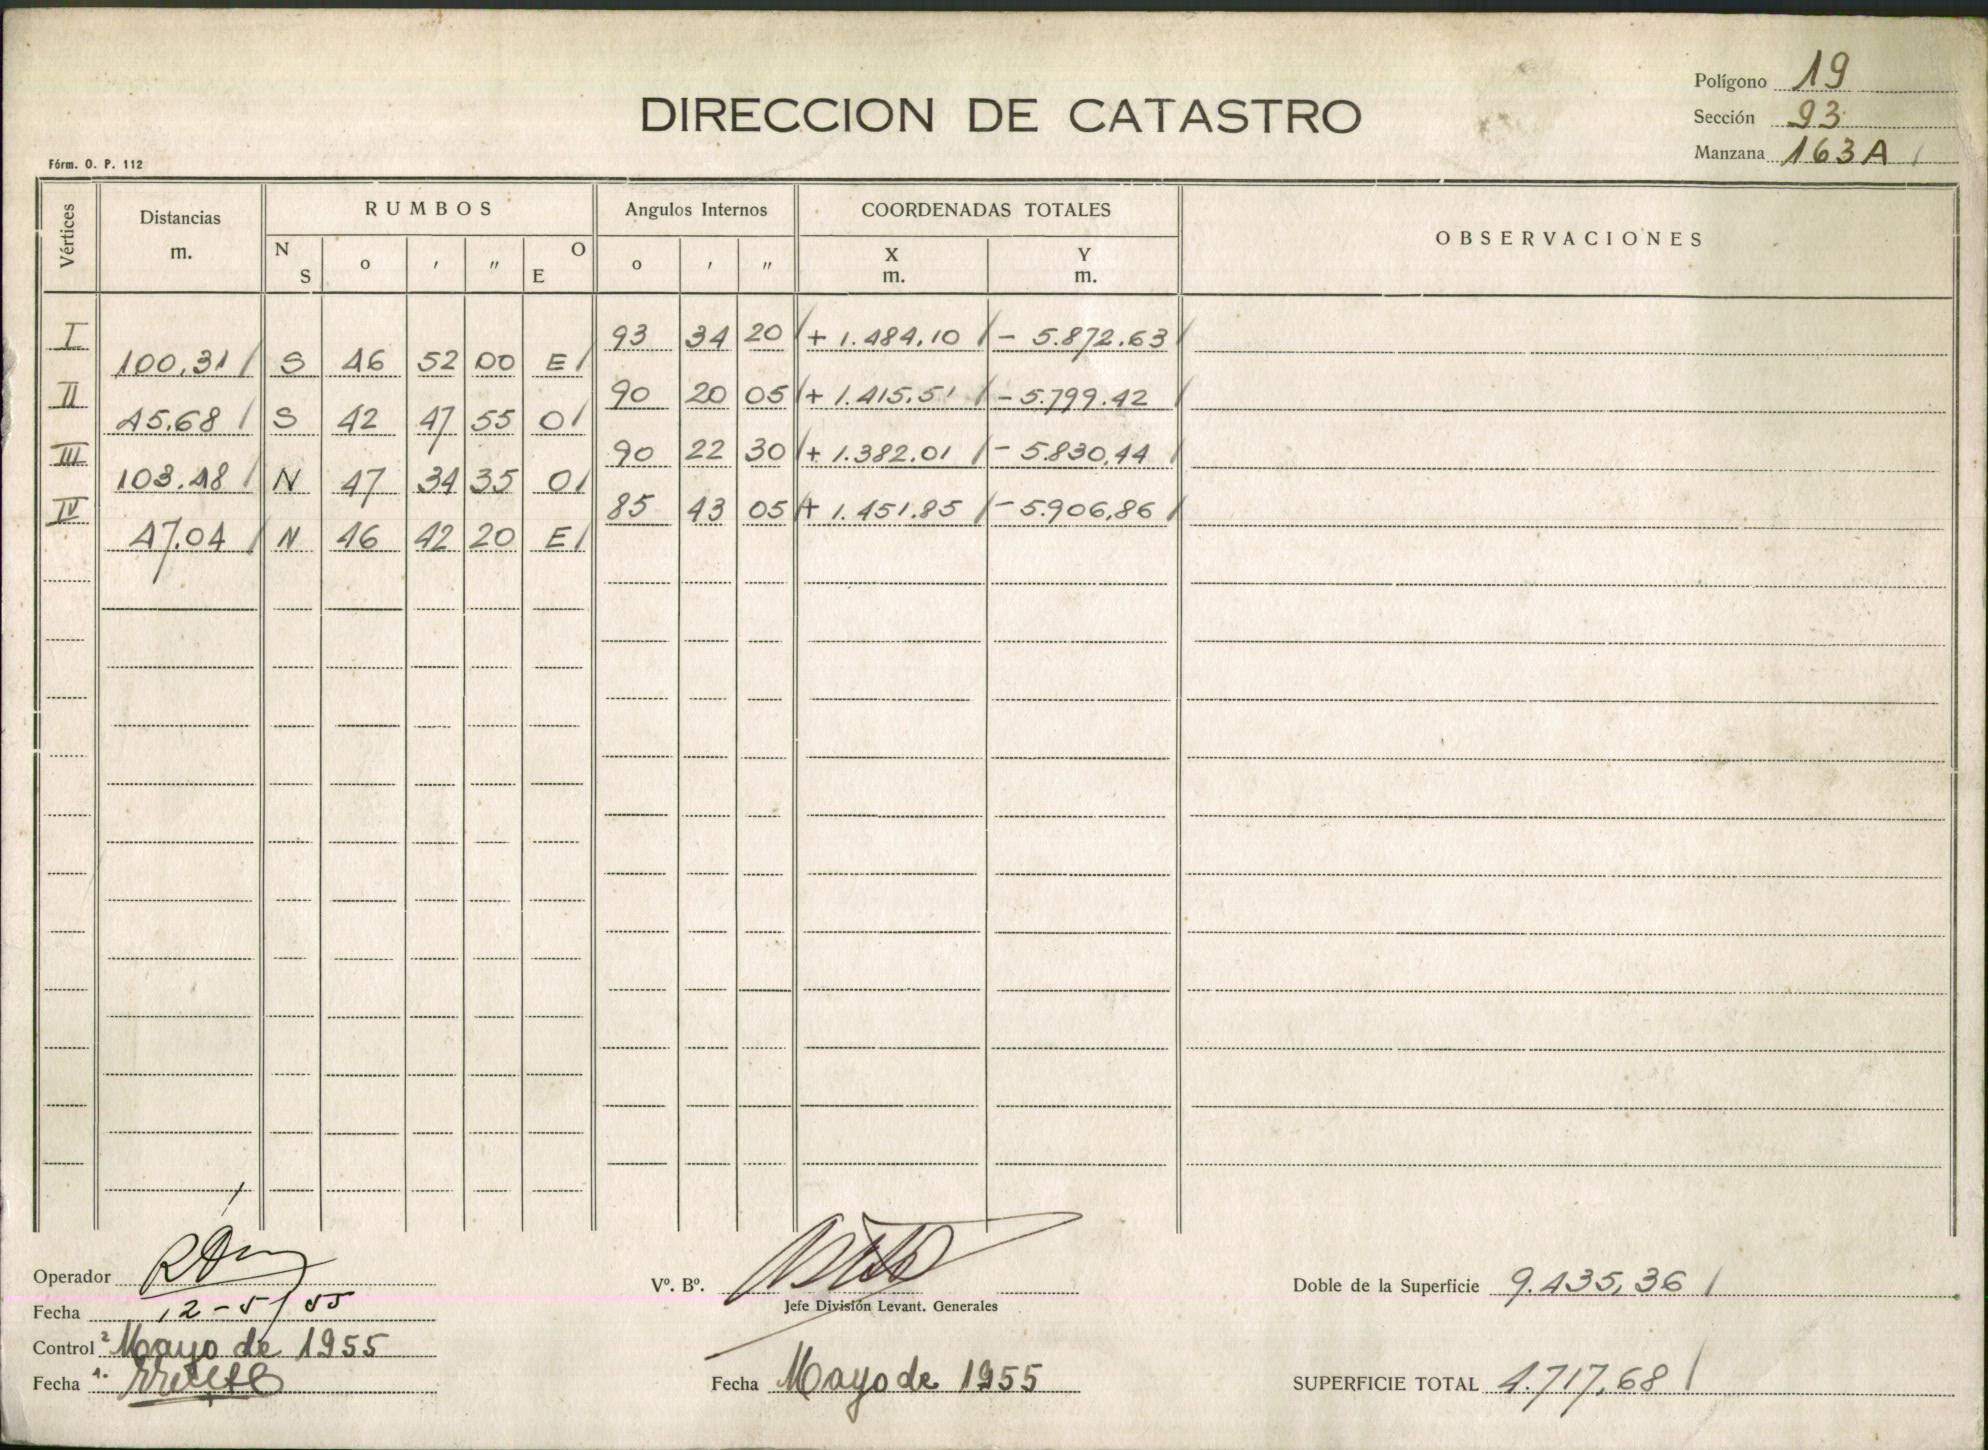 Polígono 19
DIRECCION DE CATASTRO
Sección 93
Manzana 163A
Fórm. O. P. 112
Vértices Distancias m. RUMBOS Angulos Internos COORDENADAS TOTALES OBSERVACIONES
N S o ' " O E o ' " X m. Y m.
I 93 34 20 + 1.484,10 - 5.872.63
100,31 S 46 52 00 E
II 90 20 05 + 1.415.51 - 5.799.42
45.68 S 42 47 55 O
III 90 22 30 + 1.382.01 - 5.830,44
103.48 N 47 34 35 O
IV 85 43 05 + 1.451.85 - 5.906,86
47.04 N 46 42 20 E
Operador
Vº. Bº.
Doble de la Superficie 9.435,36
Jefe División Levant. Generales
Fecha 12-5/55
Control 2 Mayo de 1955
Fecha 1.
Fecha Mayo de 1955
SUPERFICIE TOTAL 4.717,68